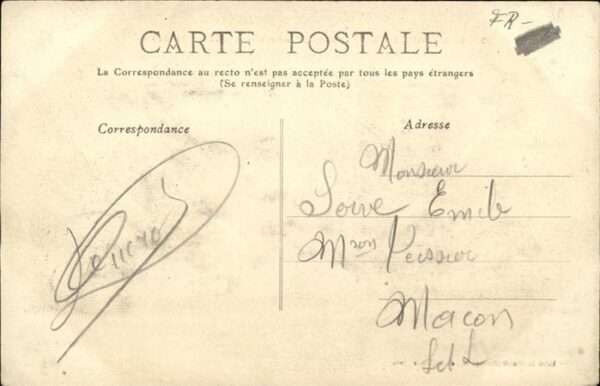 FR-
CARTE POSTALE
La Correspondance au recto n'est pas acceptée par tous les pays étrangers
(Se renseigner à la Poste)
Correspondance
Adresse
Monsieur
Emile
Mson
Macon